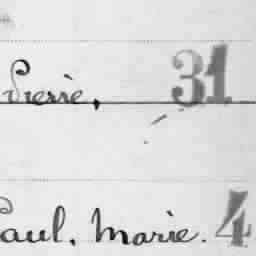 Pierre, 31
Paul, Marie. 4